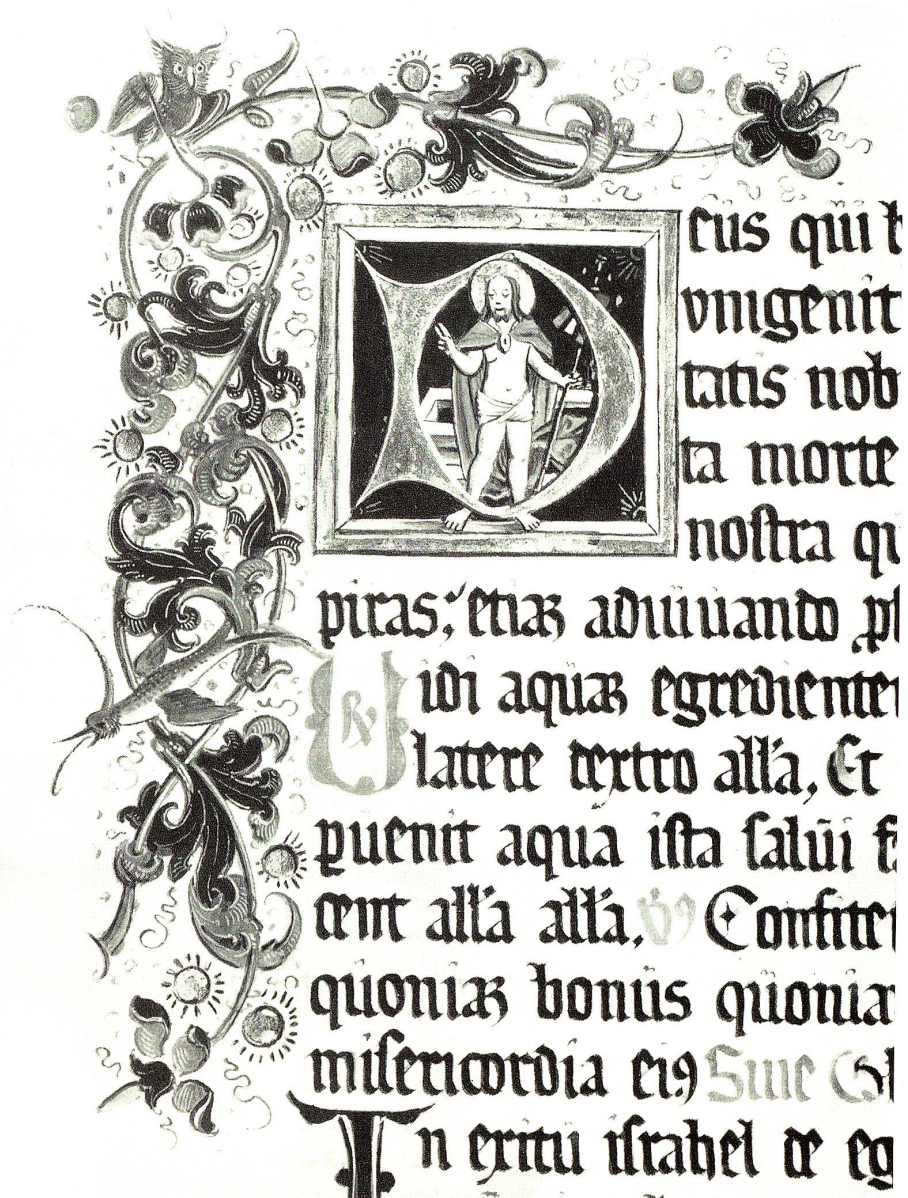 Deus qui h
vnigenit
tatis nob
ta morte
nostra qu
piras: etiaꝫ adiuuando
Vidi aquaꝫ egredientem
latere dextro all'a, Et
ꝑuenit aqua ista salui f
cent all'a all'a. Confite
quoniaꝫ bonus quonia
misericordia eiꝰ Sine Gl
In exitu israhel de eg